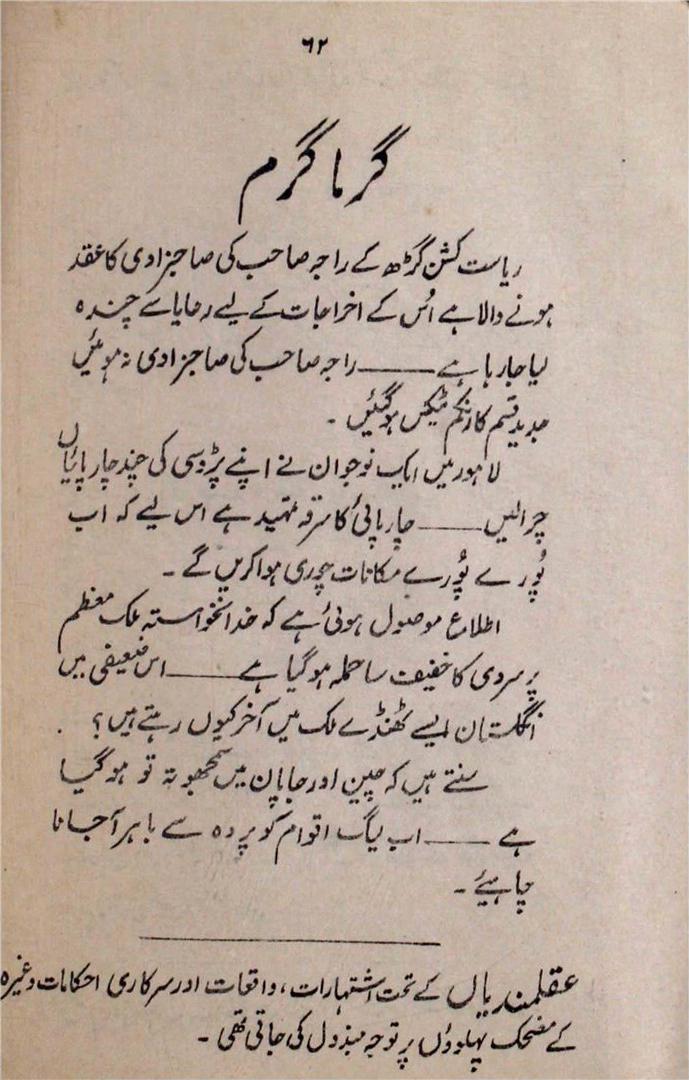 ۶۲
گرما گرم
ریاست کشن گڑھ کے راجہ صاحب کی صاحبزادی کا عقد
ہونے والا ہے اُس کے اخراجات کے لیے رعایا سے چندہ
لیا جا رہا ہے ——— راجہ صاحب کی صاحبزادی نہ ہوئیں
جدید قسم کا انکم ٹیکس ہو گئیں ۔
لاہور میں ایک نوجوان نے اپنے پڑوسی کی چند چارپائیاں
چرالیں ——— چارپائی کا سرقہ تمہید ہے اس لیے کہ اب
پُورے پُورے مکانات چوری ہوا کریں گے ۔
اطلاع موصول ہوئی ہے کہ خدانخواستہ ملک معظم
پر سردی کا خفیف سا حملہ ہو گیا ہے ——— اس ضعیفی میں
انگلستان ایسے ٹھنڈے ملک میں آخر کیوں رہتے ہیں؟
سنتے ہیں کہ چین اور جاپان میں سمجھوتہ تو ہو گیا
ہے ——— اب لیگ اقوام کو پردہ سے باہر آجانا
چاہیئے ۔
عقلمندیاں کے تحت اشتہارات، واقعات اور سرکاری احکامات وغیرہ
کے مضحک پہلوؤں پر توجہ مبذول کی جاتی تھی ۔